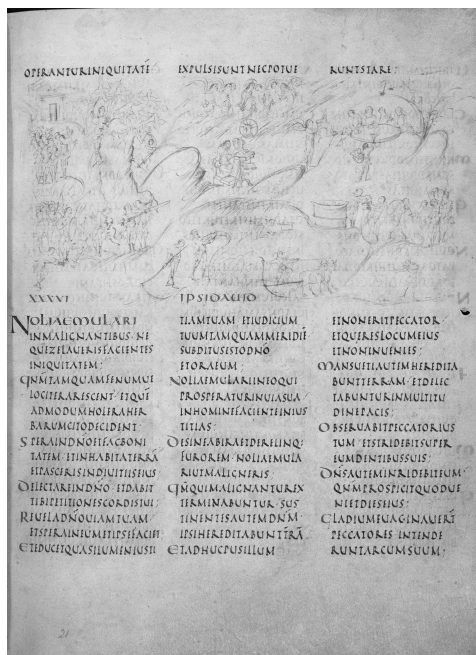 OPERANTURINIQUITATĒ
EXPULSISUNTNECPOTUE
RUNTSTARE·
XXXVI
IPSIDAUID
NOLIAEMULARI
INMALIGNANTIBUS·NE
QUEZELAUERISFACIENTES
INIQUITATEM;
QNMTAMQUAMFENUMUE
LOCITERARESCENT·ETQUE
ADMODUMHOLERAHER
BARUMCITODECIDENT·
SPERAINDNOETFACBONI
TATEM·ETINHABITATERRĀ
ETPASCERISINDIUITIISEIUS
DELECTAREINDNO·ETDABIT
TIBIPETITIONESCORDISTUI·
REUELADNOUIAMTUAM·
ETSPERAINEUMETIPSEFACIET
ETEDUCETQUASILUMENIUSTI
TIAMTUAM·ETIUDICIUM
TUUMTAMQUAMMERIDIĒ
SUBDITUSESTODNO
ETORAEUM;
NOLIAEMULARIINEOQUI
PROSPERATURINUIASUA·
INHOMINEFACIENTEINIUS
TITIAS·
DESINEABIRAETDERELINQ:
FUROREM·NOLIAEMULA
RIUTMALIGNERIS·
QMQUIMALIGNANTUREX
TERMINABUNTUR·SUS
TINENTESAUTEMDNM
IPSIHEREDITABUNTTRĀ
ETADHUCPUSILLUM
ETNONERITPECCATOR·
ETQUERESLOCUMEIUS
ETNONINUENIES;
MANSUETIAUTEMHEREDITA
BUNTTERRAM·ETDELEC
TABUNTURINMULTITU
DINEPACIS·
OBSERUABITPECCATORIUS
TUM·ETSTRIDEBITSUPER
EUMDENTIBUSSUIS·
DNSAUTEMINRIDEBITEUM·
QNMPROSPICITQUODUE
NIETDIESEIUS·
GLADIUMEUAGINAUERT
PECCATORES·INTENDE
RUNTARCUMSUUM·
21